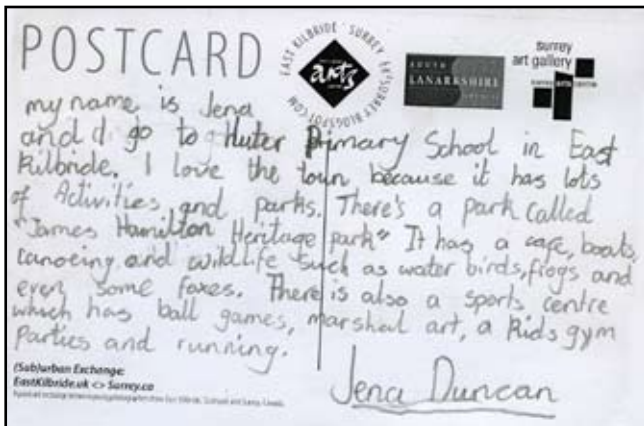 POSTCARD
EAST KILBRIDE SURREY EK2SURREY.BLOGSPOT.COM
arts
SOUTH
LANARKSHIRE
COUNCIL
surrey
art gallery
SURREY ARTS CENTRE
my name is Jena
and I go to Huter Primary School in East
Kilbride. I love the town because it has lots
of Activities and parks. There's a park called
"James Hamilton Heritage park" It has a cafe, boats,
canoeing and wildlife such as water birds, frogs and
even some foxes. There is also a sports centre
which has ball games, marshal art, a kids gym
Parties and running.
(Sub)urban Exchange:
EastKilbride.uk <> Surrey.ca
Jena Duncan